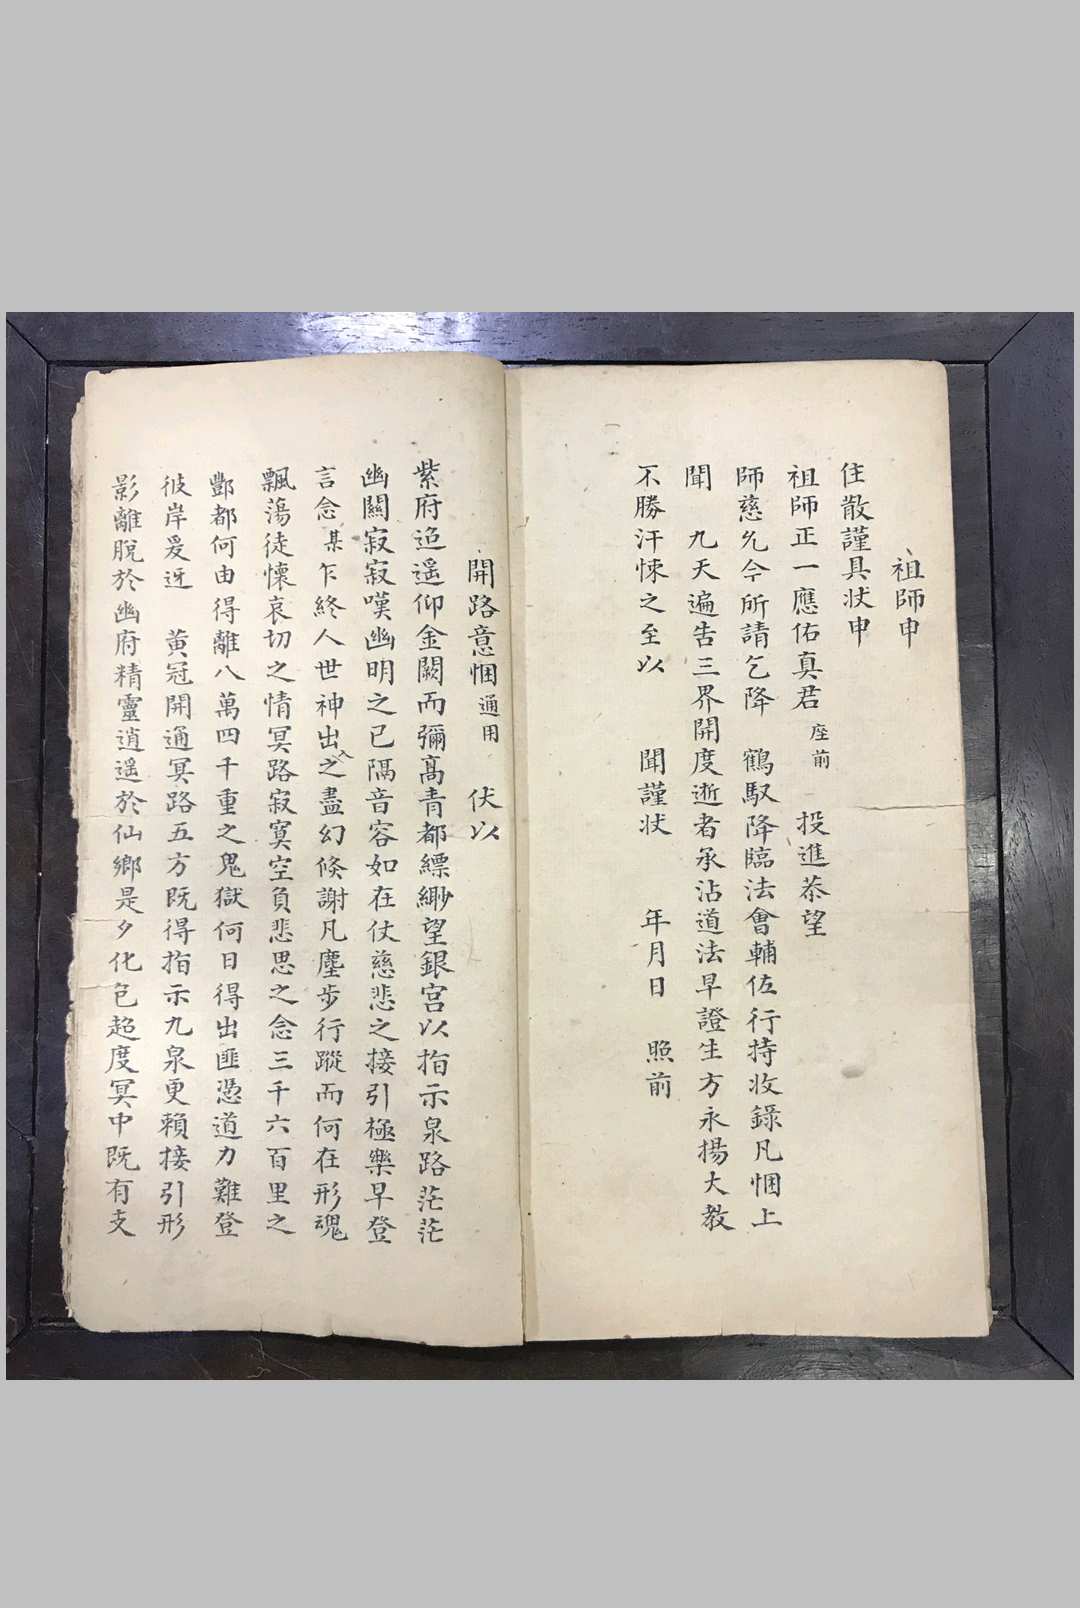 祖師申
住散謹具狀申
祖師正一應佑真君 座前 投進恭望
師慈允今所請乞降 鶴馭降臨法會輔佐行持收錄凡悃上
聞 九天遍告三界開度逝者承沾道法早證生方永揚大教
不勝汗悚之至以 聞謹狀 年月日 照前
開路意悃通用 伏以
紫府迢遥仰金闕而彌髙青都縹緲望銀宮以指示泉路茫茫
幽關寂寂嘆幽明之已隔音容如在仗慈悲之接引極樂早登
言念某乍終人世神出入之盡幻倏謝凡塵步行蹤而何在形魂
飄蕩徒懷哀切之情冥路寂寞空負悲思之念三千六百里之
酆都何由得離八萬四千重之鬼獄何日得出匪憑道力難登
彼岸爰迓 黃冠開通冥路五方既得指示九泉更賴接引形
影離脫於幽府精靈逍遥於仙鄉是夕化包超度冥中既有支